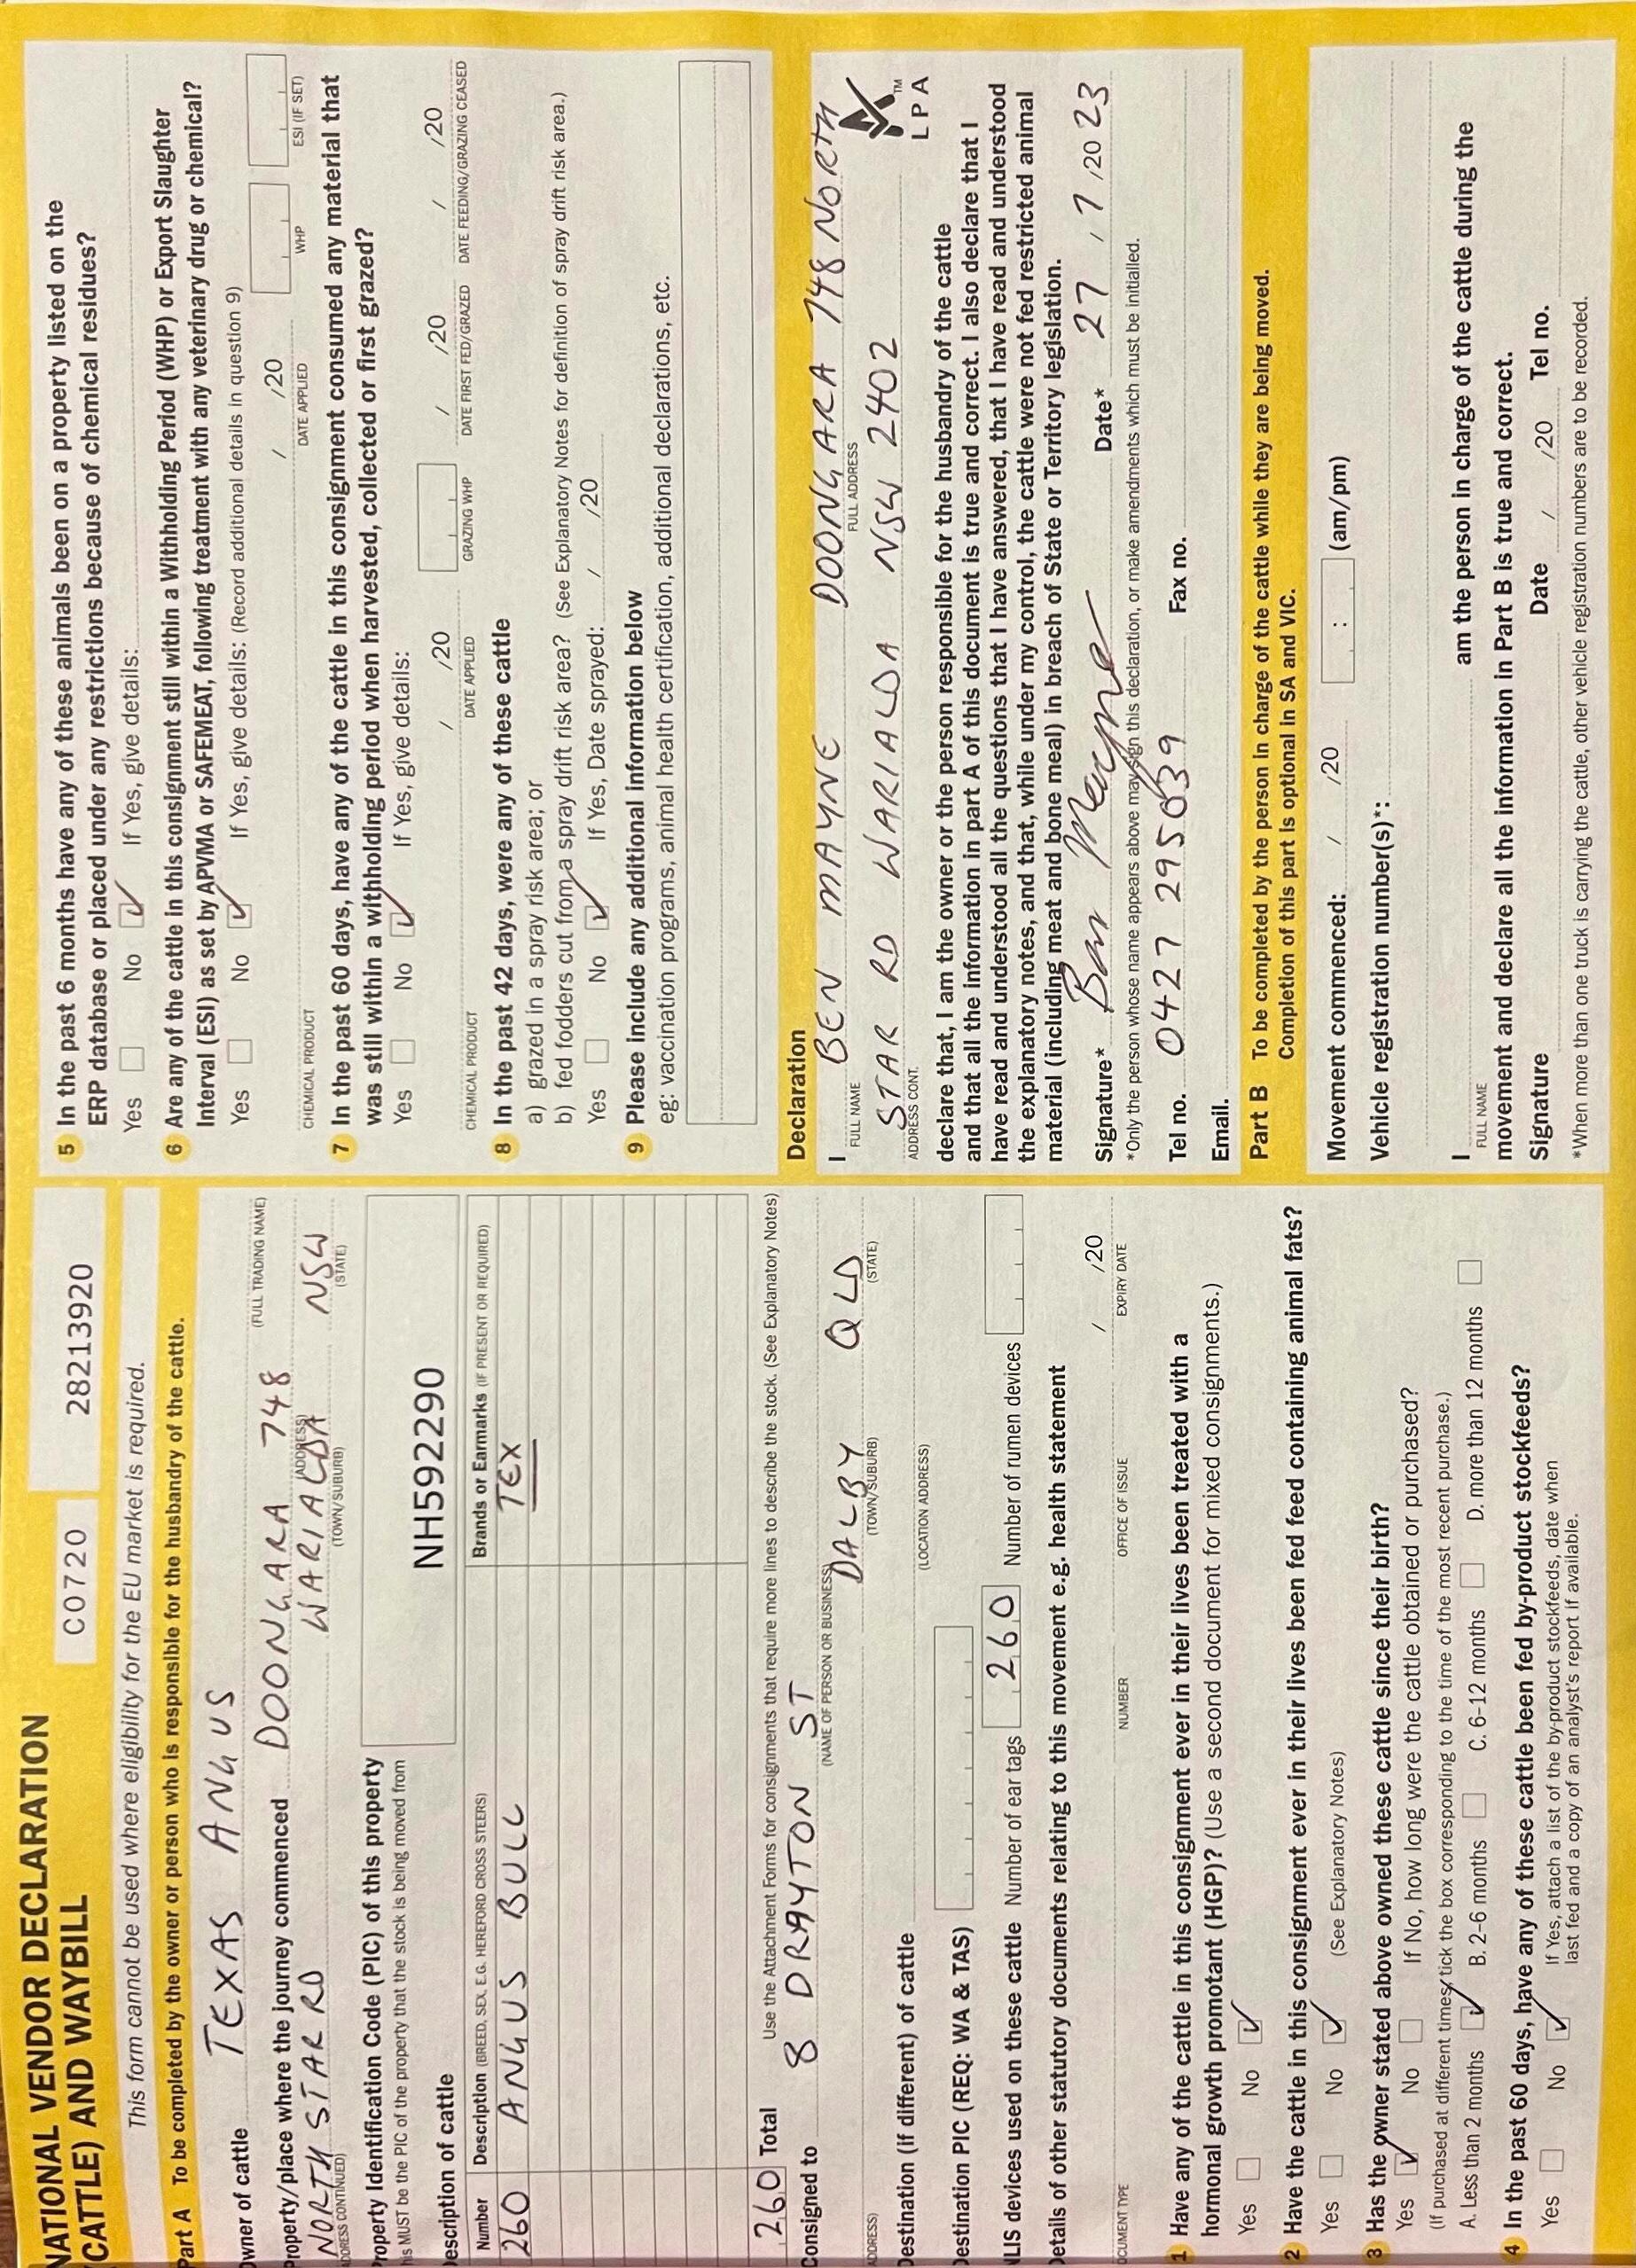 NATIONAL VENDOR DECLARATION
(CATTLE) AND WAYBILL
C0720 28213920
This form cannot be used where eligibility for the EU market is required.
Part A To be completed by the owner or person who is responsible for the husbandry of the cattle.
Owner of cattle TEXAS ANGUS
(FULL TRADING NAME)
Property/place where the journey commenced DOONGARA 748
(ADDRESS)
NORTH STAR RD WARIALDA NSW
(ADDRESS CONTINUED) (TOWN/SUBURB) (STATE)
Property Identification Code (PIC) of this property
This MUST be the PIC of the property that the stock is being moved from
NH592290
Description of cattle
Number Description (BREED, SEX, E.G. HEREFORD CROSS STERS) Brands or Earmarks (IF PRESENT OR REQUIRED)
260 ANGUS BULL TEX
260 Total Use the Attachment Forms for consignments that require more lines to describe the stock. (See Explanatory Notes)
Consigned to 8 DRAYTON ST
(NAME OF PERSON OR BUSINESS)
DALBY QLD
(ADDRESS) (TOWN/SUBURB) (STATE)
Destination (if different) of cattle
(LOCATION ADDRESS)
Destination PIC (REQ: WA & TAS)
NLIS devices used on these cattle Number of ear tags 260 Number of rumen devices
Details of other statutory documents relating to this movement e.g. health statement
/ /20
DOCUMENT TYPE NUMBER OFFICE OF ISSUE EXPIRY DATE
1 Have any of the cattle in this consignment ever in their lives been treated with a
hormonal growth promotant (HGP)? (Use a second document for mixed consignments.)
Yes No ✓
2 Have the cattle in this consignment ever in their lives been fed feed containing animal fats?
Yes No ✓ (See Explanatory Notes)
3 Has the owner stated above owned these cattle since their birth?
Yes ✓ No If No, how long were the cattle obtained or purchased?
(If purchased at different times, tick the box corresponding to the time of the most recent purchase.)
A. Less than 2 months ✓ B. 2-6 months C. 6-12 months D. more than 12 months
4 In the past 60 days, have any of these cattle been fed by-product stockfeeds?
Yes No ✓ If Yes, attach a list of the by-product stockfeeds, date when
last fed and a copy of an analyst's report if available.
5 In the past 6 months have any of these animals been on a property listed on the
ERP database or placed under any restrictions because of chemical residues?
Yes No ✓ If Yes, give details:
6 Are any of the cattle in this consignment still within a Withholding Period (WHP) or Export Slaughter
Interval (ESI) as set by APVMA or SAFEMEAT, following treatment with any veterinary drug or chemical?
Yes No ✓ If Yes, give details: (Record additional details in question 9)
/ /20
CHEMICAL PRODUCT DATE APPLIED WHP ESI (IF SET)
7 In the past 60 days, have any of the cattle in this consignment consumed any material that
was still within a withholding period when harvested, collected or first grazed?
Yes No ✓ If Yes, give details:
/ /20 / /20 / /20
CHEMICAL PRODUCT DATE APPLIED GRAZING WHP DATE FIRST FED/GRAZED DATE FEEDING/GRAZING CEASED
8 In the past 42 days, were any of these cattle
a) grazed in a spray risk area; or
b) fed fodders cut from a spray drift risk area? (See Explanatory Notes for definition of spray drift risk area.)
Yes No ✓ If Yes, Date sprayed: / /20
9 Please include any additional information below
eg: vaccination programs, animal health certification, additional declarations, etc.
Declaration
I BEN MAYNE DOONGARA 748 NORTH
FULL NAME FULL ADDRESS
STAR RD WARIALDA NSW 2402
ADDRESS CONT.
LPA
TM
declare that, I am the owner or the person responsible for the husbandry of the cattle
and that all the information in part A of this document is true and correct. I also declare that I
have read and understood all the questions that I have answered, that I have read and understood
the explanatory notes, and that, while under my control, the cattle were not fed restricted animal
material (including meat and bone meal) in breach of State or Territory legislation.
Signature* Ben Mayne Date* 27 / 7 /2023
*Only the person whose name appears above may sign this declaration, or make amendments which must be initialled.
Tel no. 0427 295039 Fax no.
Email.
Part B To be completed by the person in charge of the cattle while they are being moved.
Completion of this part is optional in SA and VIC.
Movement commenced: / /20 : (am/pm)
Vehicle registration number(s)*:
I am the person in charge of the cattle during the
FULL NAME
movement and declare all the information in Part B is true and correct.
Signature Date / /20 Tel no.
*When more than one truck is carrying the cattle, other vehicle registration numbers are to be recorded.